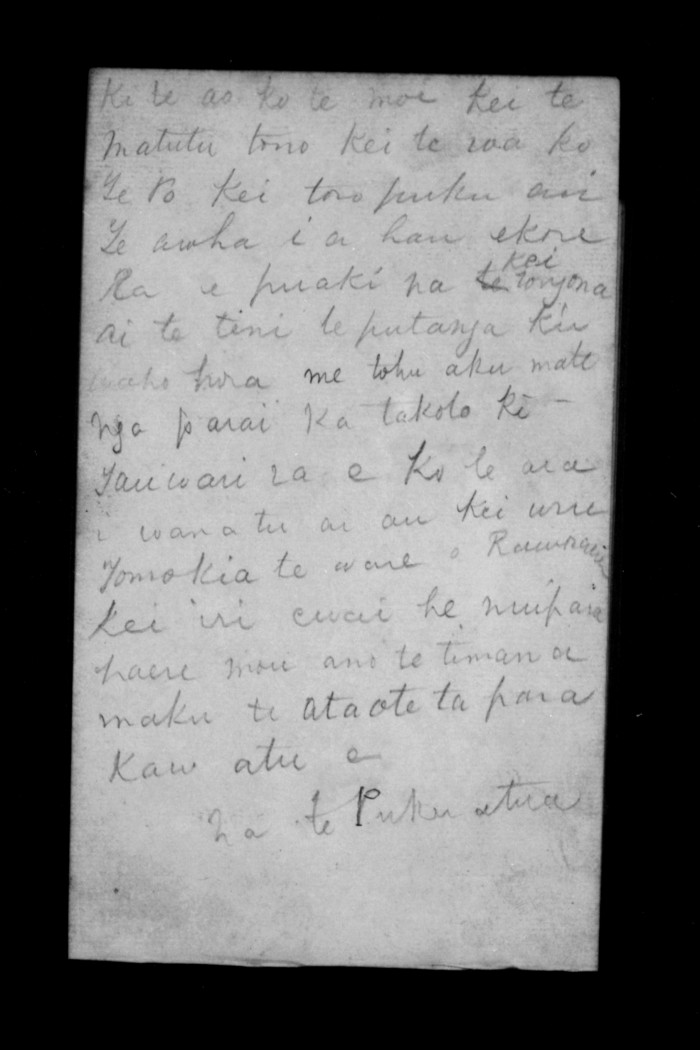 Ki te ao ko te moe kei te
Matutu tono kei te roa ko
Te Po kei toro puku au
Te awha i a hau ekore
Ra e puaki na te kei tongona
ai te tini te putanga Kii
waho hora me tohu aku mate
nga parai Ka takoto ki -
Tauwari ra e Ko te ara
i wana tu ai au kei uru
Tomokia te ware o
Kei iri ewai he muipaia
haere mou ano te timana
maku te ataote ta para
Kaw atu e
Na te Puku atua